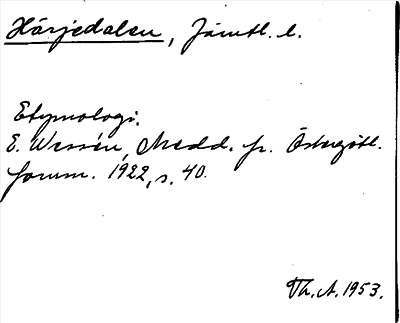 Härjedalen, Jämtl. l.
Etymologi.
E. Wessén, Medd. fr. Östergötl.
fornm. 1922, s. 40.
Th. A. 1953.